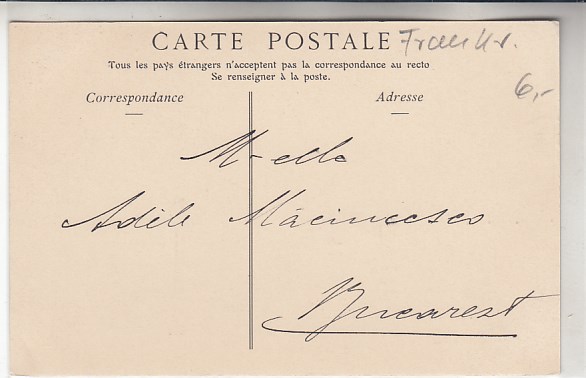 CARTE POSTALE Frankr.
Tous les pays étrangers n'acceptent pas la correspondance au recto
Se renseigner à la poste.
6,-
Correspondance
Adresse
M-elle
Adèle
Bucarest